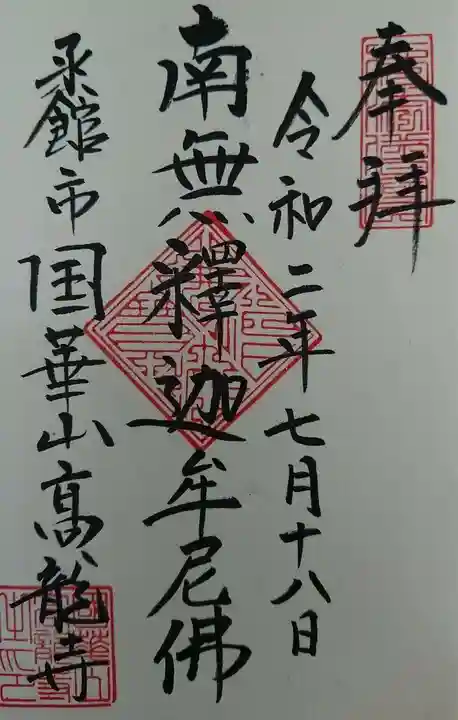 奉拜
令和二年七月十八日
南無釋迦牟尼佛
函館市国華山高龍寺